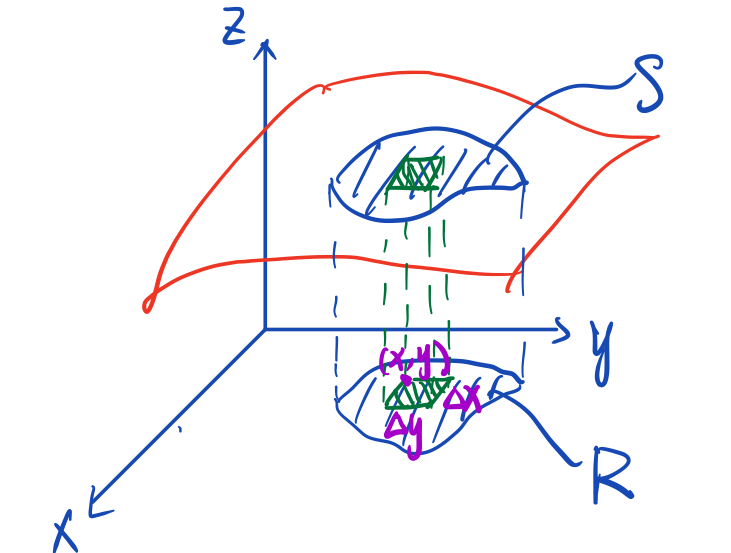 z
S
y
(x,y)
Δx
Δy
R
x